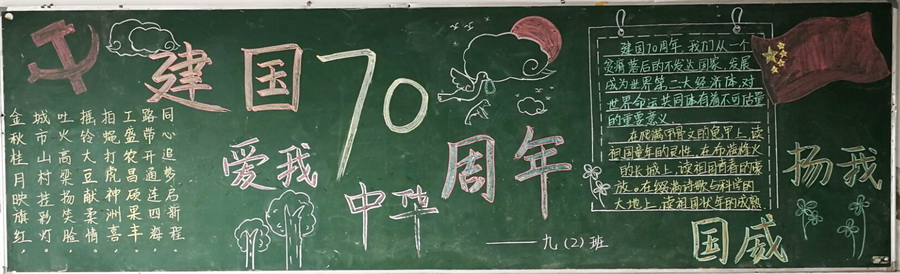 建国70周年
爱我中华
金秋桂月映旗红,
城市山村挂彩灯.
吐火高粱扬笑脸,
摇铃大豆献柔情.
拍蝇打虎神洲喜,
工盛农昌硕果丰.
路带开通连四海,
同心追梦启新程.
建国70周年,我们从一个
贫穷落后的不发达国家,发展
成为世界第二大经济体,对
世界命运共同体有着不可估量
的重要意义.
在爬满甲骨文的龟甲上,读
祖国童年的灵性.在布满烽火
的长城上,读祖国青春的豪
放。在缀满诗歌与科学的
大地上,读祖国壮年的成熟
扬我
国威
——九(2)班